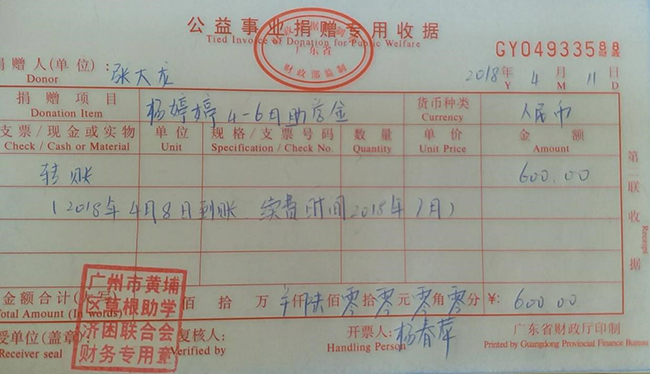 公益事业捐赠专用收据
Tied Invoice of Donation for Public Welfare
广东省
财政部监制
GY04933588
捐赠人(单位): 张大龙
Donor
2018年 4月 11日
Y M D
捐赠项目 杨婷婷4-6月助学金 货币种类 人民币
Donation Item Currency
支票/现金或实物 单位 规格/支票号码 数量 单价 金额
Check / Cash or Material Unit Specification / Check No. Quantity Unit Price Amount
转账 600.00
(2018年4月8日到账 续费时间2018年7月)
第二联 收据
Receipt
金额合计(大写) 佰 拾 万 仟 陆 佰 零 拾 零 元 零 角 零 分 ¥: 600.00
Total Amount (In words)
广州市黄埔
区葛根助学
济困联合会
财务专用章
受单位(盖章) 复核人: 开票人: 杨春萍 广东省财政厅印制
Receiver seal Verified by Handling Person Printed by Guangdong Provincial Finance Bureau